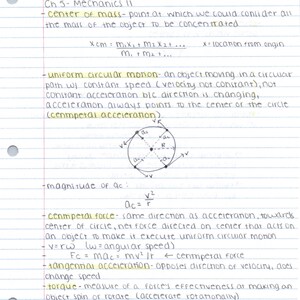 Ch 3 - Mechanics II
- center of mass - point at which we could consider all
the mass of the object to be concentrated
xcm = m₁x₁ + m₂x₂ + ... x = location from origin
m₁ + m₂ ...
- uniform circular motion - an object moving in a circular
path w/ constant speed (velocity not constant), not
constant acceleration b/c direction is changing,
acceleration always points to the center of the circle
(centripetal acceleration)
- magnitude of ac:
ac = v²
r
- centripetal force - same direction as acceleration, towards
center of circle, net force directed on center that acts on
an object to make it execute uniform circular motion
- v = rω (ω = angular speed)
Fc = mac = mv²/r ← centripetal force
- tangential acceleration - opposes direction of velocity, does
change speed
- torque - measure of a force's effectiveness at making an
object spin or rotate (accelerate rotationally)